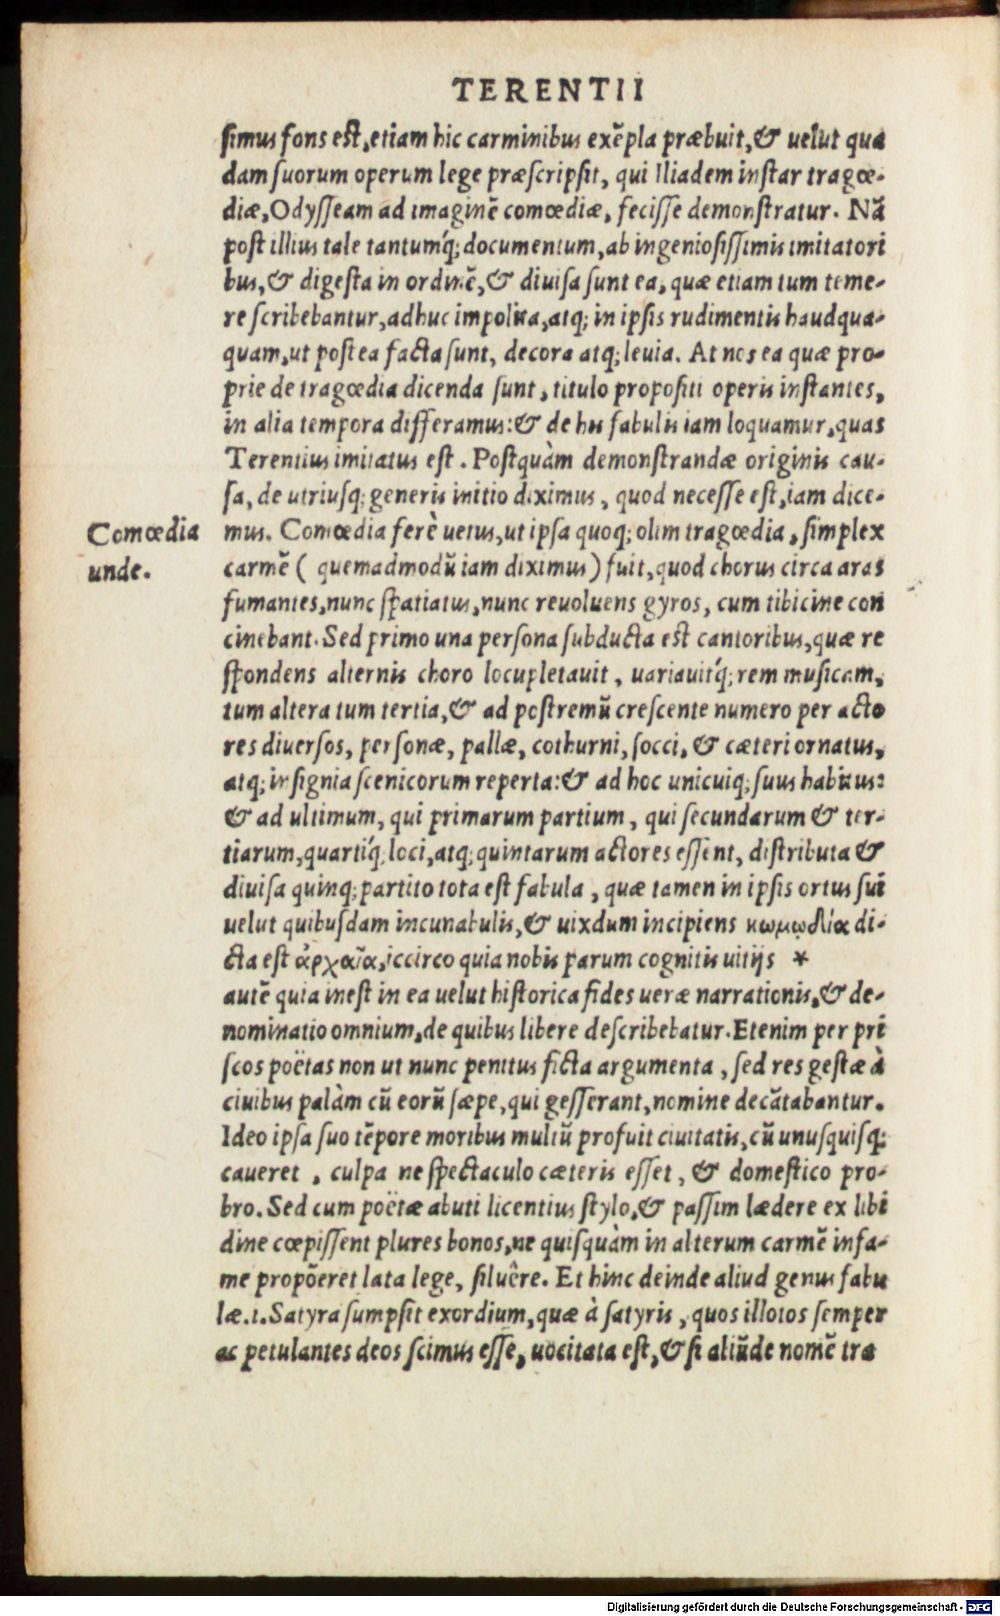 TERENTII
simus fons est, etiam hic carminibus exẽpla præbuit, & uelut qua
dam suorum operum lege præscripsit, qui Iliadem instar tragœ-
diæ, Odysseam ad imaginẽ comœdiæ, fecisse demonstratur. Nã
post illius tale tantumq́; documentum, ab ingeniosissimis imitatori
bus, & digesta in ordinẽ, & diuisa sunt ea, quæ etiam tum teme-
re scribebantur, adhuc impolita, atq; in ipsis rudimentis haudqua-
quam, ut postea facta sunt, decora atq; leuia. At nos ea quæ pro-
prie de tragœdia dicenda sunt, titulo propositi operis instantes,
in alia tempora differamus: & de his fabulis iam loquamur, quas
Terentius imitatus est. Postquàm demonstrandæ originis cau-
sa, de utriusq; generis initio diximus, quod necesse est, iam dice-
Comœdia
unde.
mus. Comœdia ferè uetus, ut ipsa quoq; olim tragœdia, simplex
carmẽ ( quemadmodũ iam diximus) fuit, quod chorus circa aras
fumantes, nunc spatiatus, nunc reuoluens gyros, cum tibicine con
cinebant. Sed primo una persona subducta est cantoribus, quæ re
spondens alternis choro locupletauit, uariauitq́; rem musicam,
tum altera tum tertia, & ad postremũ crescente numero per acto
res diuersos, personæ, pallæ, cothurni, socci, & cæteri ornatus,
atq; insignia scenicorum reperta: & ad hoc unicuiq; suus habitus:
& ad ultimum, qui primarum partium, qui secundarum & ter-
tiarum, quartiq́; loci, atq; quintarum actores essent, distributa &
diuisa quinq; partito tota est fabula, quæ tamen in ipsis ortus sui
uelut quibusdam incunabulis, & uixdum incipiens κωμῳδία di-
cta est ἀρχαῖα, iccirco quia nobis parum cognitis uitijs *
autẽ quia inest in ea uelut historica fides ueræ narrationis, & de-
nominatio omnium, de quibus libere describebatur. Etenim per pri
scos poëtas non ut nunc penitus ficta argumenta, sed res gestæ à
ciuibus palàm cũ eorũ sæpe, qui gesserant, nomine decãtabantur.
Ideo ipsa suo tẽpore moribus multũ profuit ciuitatis, cũ unusquisq;
caueret, culpa ne spectaculo cæteris esset, & domestico pro-
bro. Sed cum poëtæ abuti licentius stylo, & passim lædere ex libi
dine cœpissent plures bonos, ne quisquàm in alterum carmẽ infa-
me propõeret lata lege, siluêre. Et hinc deinde aliud genus fabu
læ .i. Satyra sumpsit exordium, quæ à satyris, quos illotos semper
ac petulantes deos scimus esse, uocitata est, & si aliũde nomẽ tra
Digitalisierung gefördert durch die Deutsche Forschungsgemeinschaft - DFG